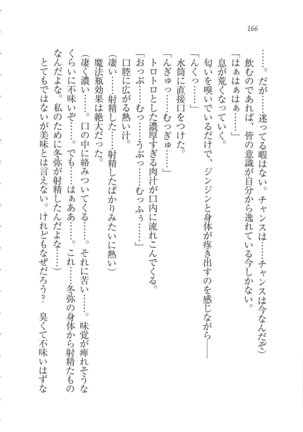 166
……。だが……迷ってる暇はない。チャンスは……チャンスは今なんだぞ)
飲むのであれば、皆の意識が自分から逸れている今しかない。
「はぁはぁはぁ……」
息が荒くなっていく。
匂いを嗅いでいるだけで、ジンジンと身体が疼き出すのを感じながら――
「んくっ……」
水筒に直接口をつけた。
「んぎゅっ……むっきゅっ……」
トロトロとした濃厚すぎる肉汁が口内に流れこんでくる。
「おっぷ……むっぷ……うぶっ……むっふぅ……」
口腔に広がる熱い汁。
(凄い……熱い……射精したばかりみたいに熱い)
魔法瓶効果は絶大だった。
(凄く濃い……。口の中に絡みついてくる……。それに苦い……。味覚が痺れそうな
くらいに不味いぞ……。でも……はぁああ……。これ……冬弥の身体から射精たもの
なんだよな……。私のために冬弥が射精したんだよな……)
とてもではないが美味とは言えない。けれどもなぜだろう? 臭くて不味いはずな